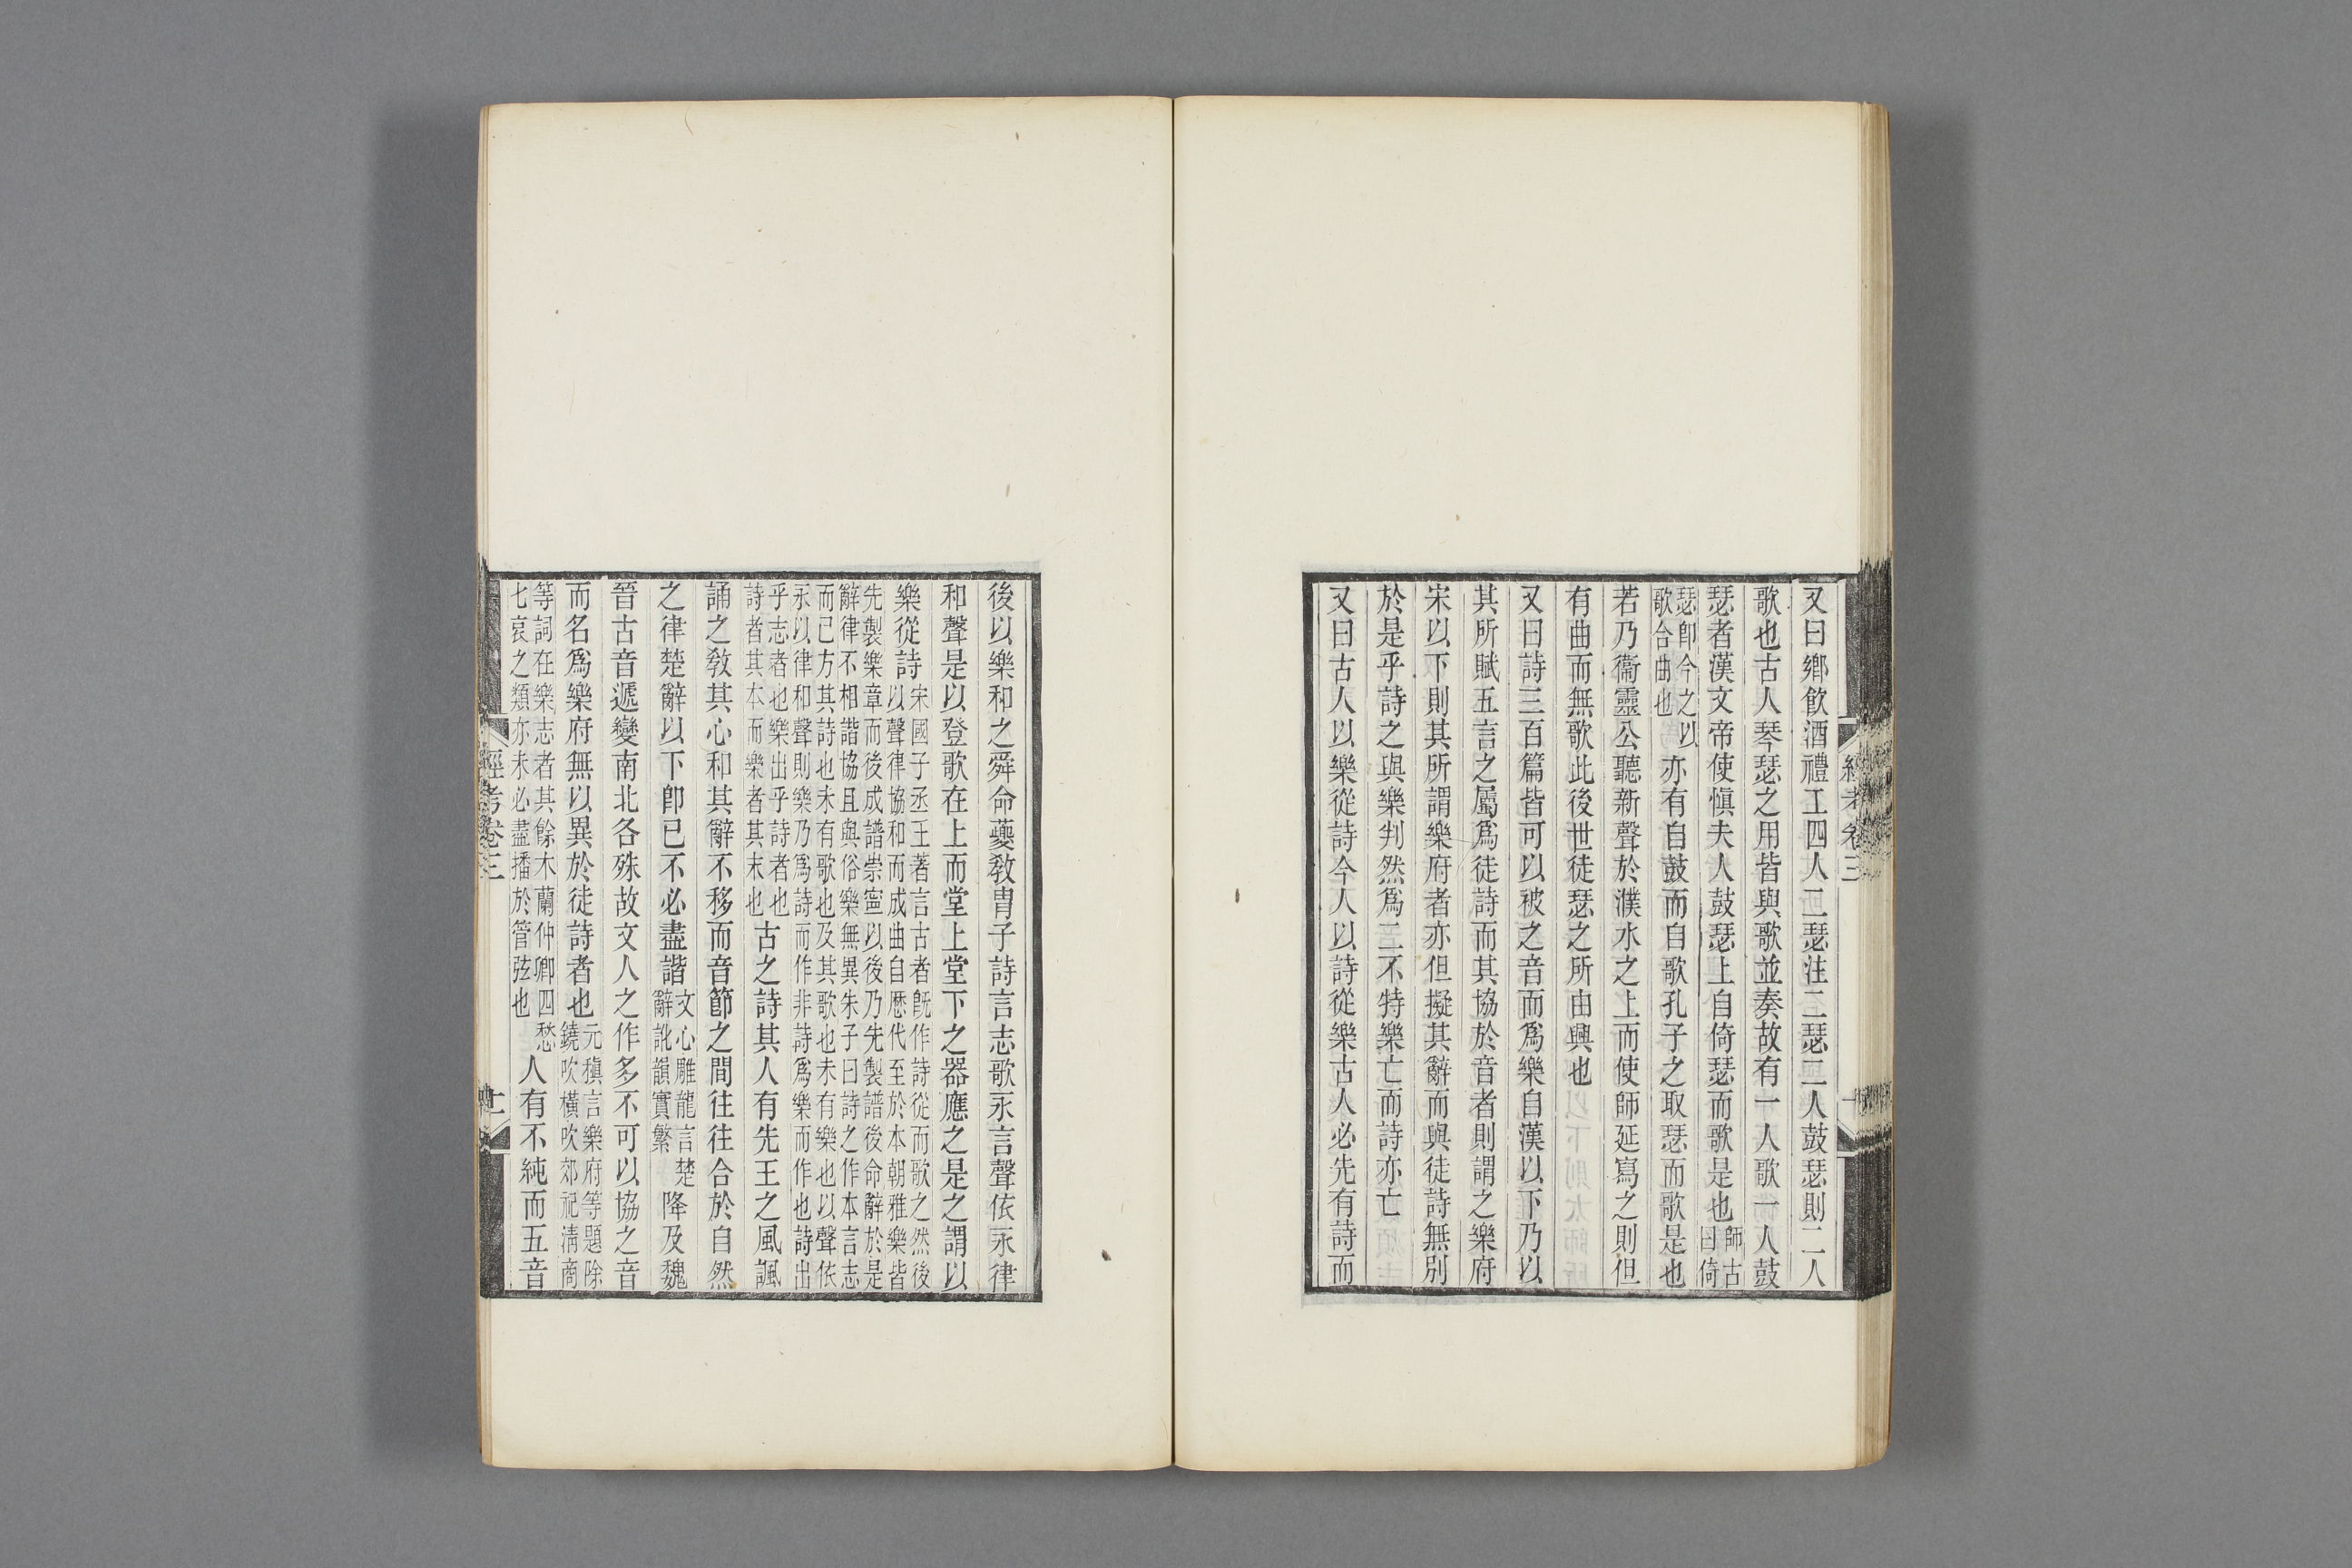 又曰鄉飲酒禮工四人二瑟注二瑟二人鼓瑟則二人
歌也古人琴瑟之用皆與歌並奏故有一人歌一人鼓
瑟者漢文帝使愼夫人鼓瑟上自倚瑟而歌是也師古曰倚
瑟卽今之以歌合曲也亦有自鼓而自歌孔子之取瑟而歌是也
若乃衞靈公聽新聲於濮水之上而使師延寫之則但
有曲而無歌此後世徒瑟之所由興也
又曰詩三百篇皆可以被之音而爲樂自漢以下乃以
其所賦五言之屬爲徒詩而其協於音者則謂之樂府
宋以下則其所謂樂府者亦但擬其辭而與徒詩無別
於是乎詩之與樂判然爲二不特樂亡而詩亦亡
又曰古人以樂從詩今人以詩從樂古人必先有詩而
經考卷三
後以樂和之舜命夔敎胄子詩言志歌永言聲依永律
和聲是以登歌在上而堂上堂下之器應之是之謂以
樂從詩宋國子丞王著言古者旣作詩從而歌之然後以聲律協和而成曲自歷代至於本朝雅樂皆
先製樂章而後成譜崇寧以後乃先製譜後命辭於是辭律不相諧協且與俗樂無異朱子曰詩之作本言志
而已方其詩也未有歌也及其歌也未有樂也以聲依永以律和聲則樂乃爲詩而作非詩爲樂而作也詩出
乎志者也樂出乎詩者也詩者其本而樂者其末也古之詩其人有先王之風諷
誦之敎其心和其辭不移而音節之間往往合於自然
之律楚辭以下卽已不必盡諧文心雕龍言楚辭訛韻實繁降及魏
晉古音遞變南北各殊故文人之作多不可以協之音
而名爲樂府無以異於徒詩者也元稹言樂府等題除鐃吹橫吹郊祀淸商
等詞在樂志者其餘木蘭仲卿四愁七哀之類亦未必盡播於管弦也人有不純而五音
經考卷三